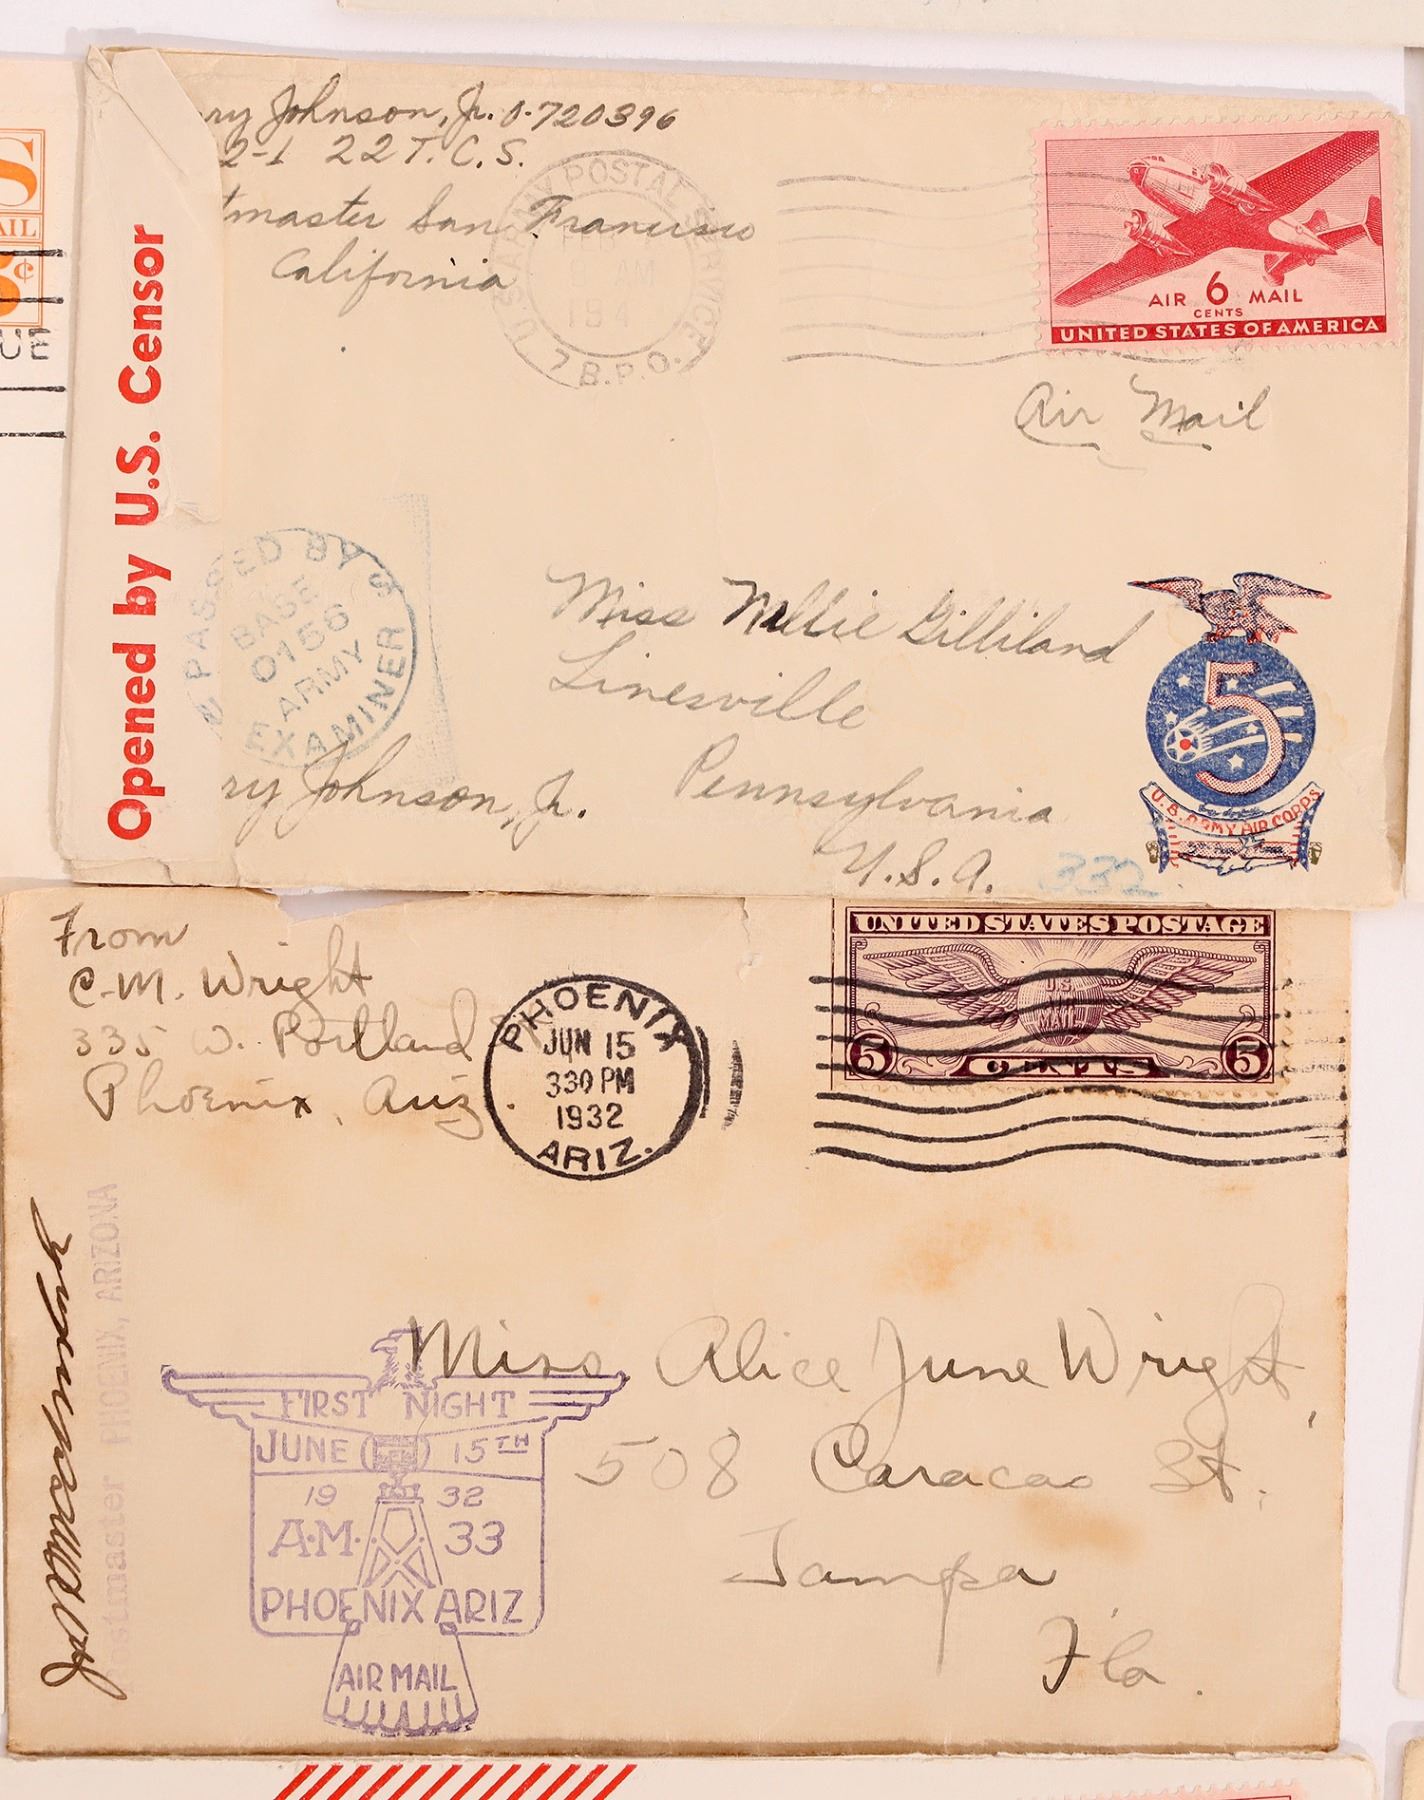 S
AIL
¢
UE
ry Johnson, Jr. O-720396
2-1 22 T. C. S.
tmaster San Francisco
California
U.S. ARMY POSTAL SERVICE
AM
194
7 B.P.O.
AIR 6 MAIL
CENTS
UNITED STATES OF AMERICA
Air Mail
Opened by U.S. Censor
PASSED BY
BASE
0156
ARMY
EXAMINER
Miss Nellie Gilliland
Linesville
Pennsylvania
U.S.A.
ry Johnson, Jr.
332
5
U.S. ARMY AIR CORPS
From
C. M. Wright
335 W. Portland
Phoenix, Ariz.
PHOENIX
JUN 15
330 PM
1932
ARIZ.
UNITED STATES POSTAGE
U.S.
AIR
MAIL
5 CENTS 5
Postmaster PHOENIX, ARIZONA
FIRST NIGHT
JUNE 15TH
19 32
A.M. 33
PHOENIX ARIZ
AIR MAIL
Miss Alice June Wright,
508 Caracas St.
Tampa,
Fla.